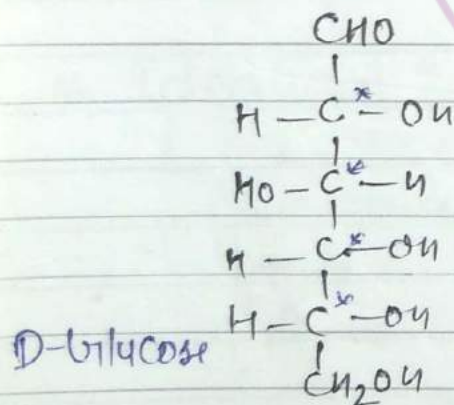 CHO
|
H — C* — OH
|
HO — C* — H
|
H — C* — OH
|
H — C* — OH
|
CH2OH
D-Glucose